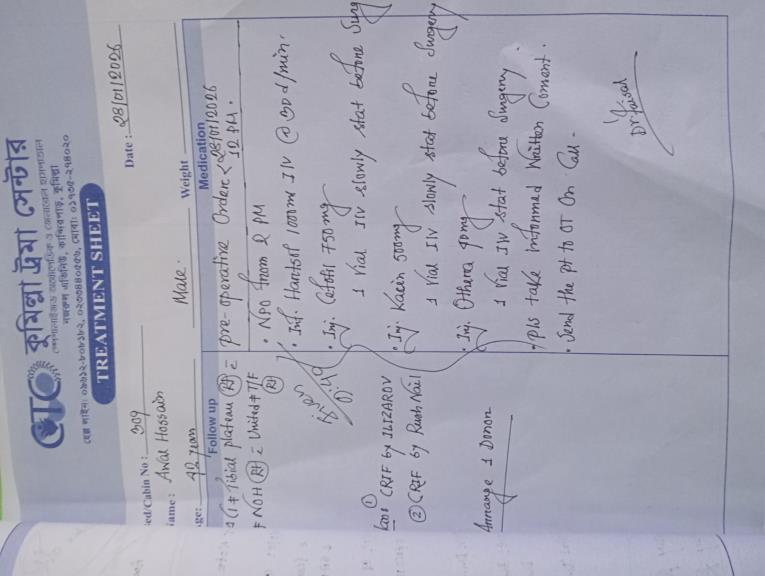 কুমিল্লা ট্রমা সেন্টার
স্পেশালাইজড অর্থোপেডিক ও জেনারেল হাসপাতাল
নজরুল এভিনিউ, কান্দিরপাড়, কুমিল্লা
TREATMENT SHEET
Date : 28/01/2026
ed/Cabin No : 309
ame : Awal Hossain
Male.
ge: 42 years
Weight
Follow up
Medication
pre-operative Order < 28/01/2026
12 PM.
• NPO from 2 PM
• Inf. Hartsol 1000ml IV @ 30 d/min.
• Inj. Cefotil 750mg
1 vial IV slowly stat before Surg
• Inj. Kacin 500mg
1 vial IV slowly stat before Surgery
• Inj. Othera 40mg
1 vial IV stat before Surgery.
• pls take informed Written Consent.
• Send the pt to OT On Call.
Tibial plateau (Rt) c
# NOH (Rt) c United # T/F
(Rt)
① CRIF by ILIZAROV
② CRIF by Rush Nail
Arrange 1 Donor
Dr. Faisal